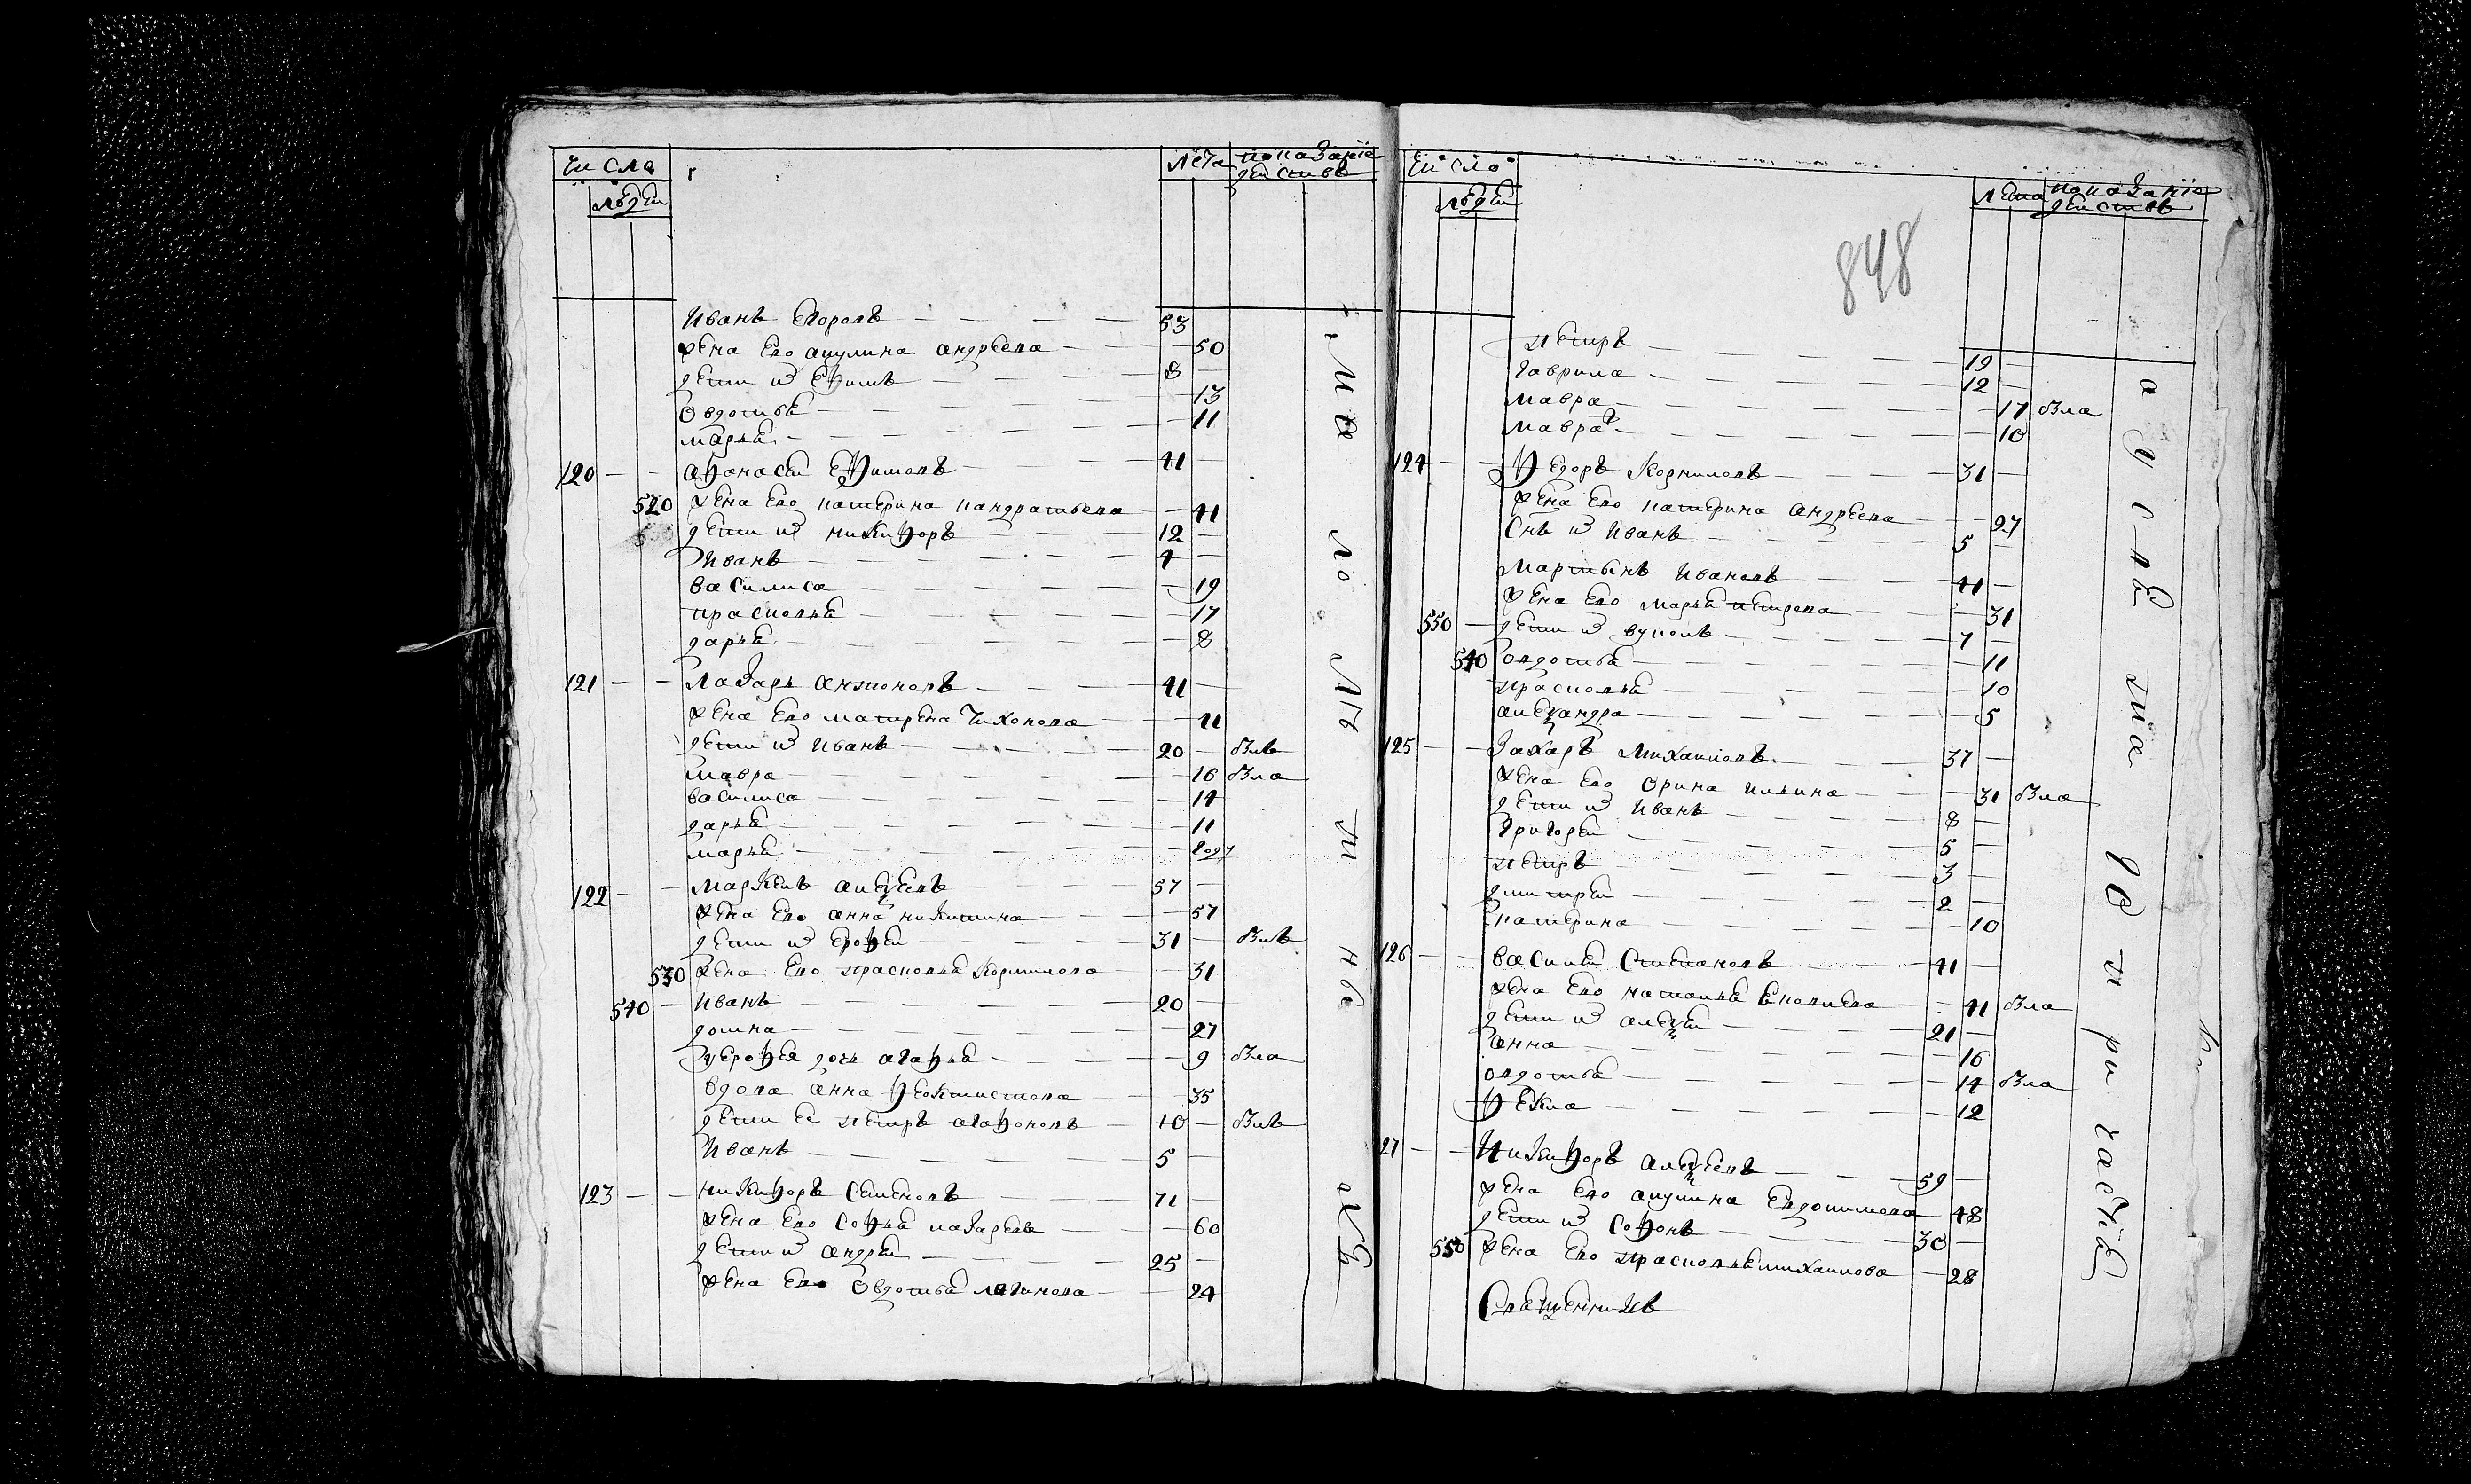 Число
людей
Лета
показание
действъ
Иванъ Егоровъ — 53
жена его акулина андреева — 50
дети их Ефимъ — 8
Овдотья — 13
марья — 11
120 — афонасей Ефимовъ — 41
520 жена его катерина кандратьева — 41
дети их никифоръ — 12
Иванъ — 4
василиса — 19
прасковья — 17
дарья — 8
121 — Лазарь антоновъ — 41
жена его матрена Тихонова — 41
дети их Иванъ — 20 — блъ
мавра — 16 бла
василиса — 14
дарья — 11
марья — 1 годъ
122 — маркелъ алексеевъ — 57
жена его анна никитина — 57
дети их Ерофей — 31 — блъ
530 жена его прасковья Кормилова — 31
540 — Иванъ — 20
домна — 27
у Ерофея дочь агафья — 9 бла
вдова анна феоктистова — 35
дети ее петръ агафоновъ — 10 — блъ
Иванъ — 5
123 — никифоръ Семеновъ — 71
жена его Софья лазарева — 60
дети их андрей — 25
жена его Овдотья логинова — 24
Число
людей
Лета
показание
действъ
848
петръ — 19
гаврила — 12
мавра — 17 бла
мавра — 10
124 — федоръ Корниловъ — 31
жена его катерина андреева — 27
Снъ их Иванъ — 5
мартынъ Ивановъ — 41
жена его марья петрова — 31
550 — дети их вуколъ — 7
540 овдотья — 11
прасковья — 10
александра — 5
125 — Захаръ михаиловъ — 37
жена его Орина ильина — 31 бла
дети их Иванъ — 8
григорей — 5
петръ — 3
дмитрей — 2
катерина — 10
126 — василей Степановъ — 41
жена его наталья — 41 бла
дети их алексей — 21
анна — 16
овдотья — 14 бла
фекла — 12
27 — Никифоръ алексеевъ — 59
жена его акулина Евдокимова — 48
дети их Софонъ — 30
550 жена его прасковья михаилова — 28
Священникъ